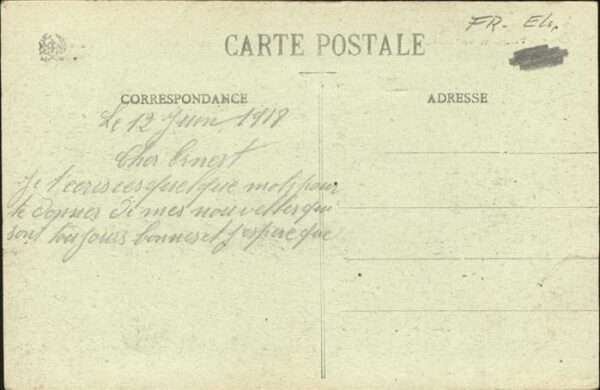 FR. Eh.
CARTE POSTALE
CORRESPONDANCE
ADRESSE
Le 12 Juin 1918
Cher Ernest
Je t ecris ces quelque mots pour
te donner di mes nouvelles qui
sont toujours bonnes et j espere que